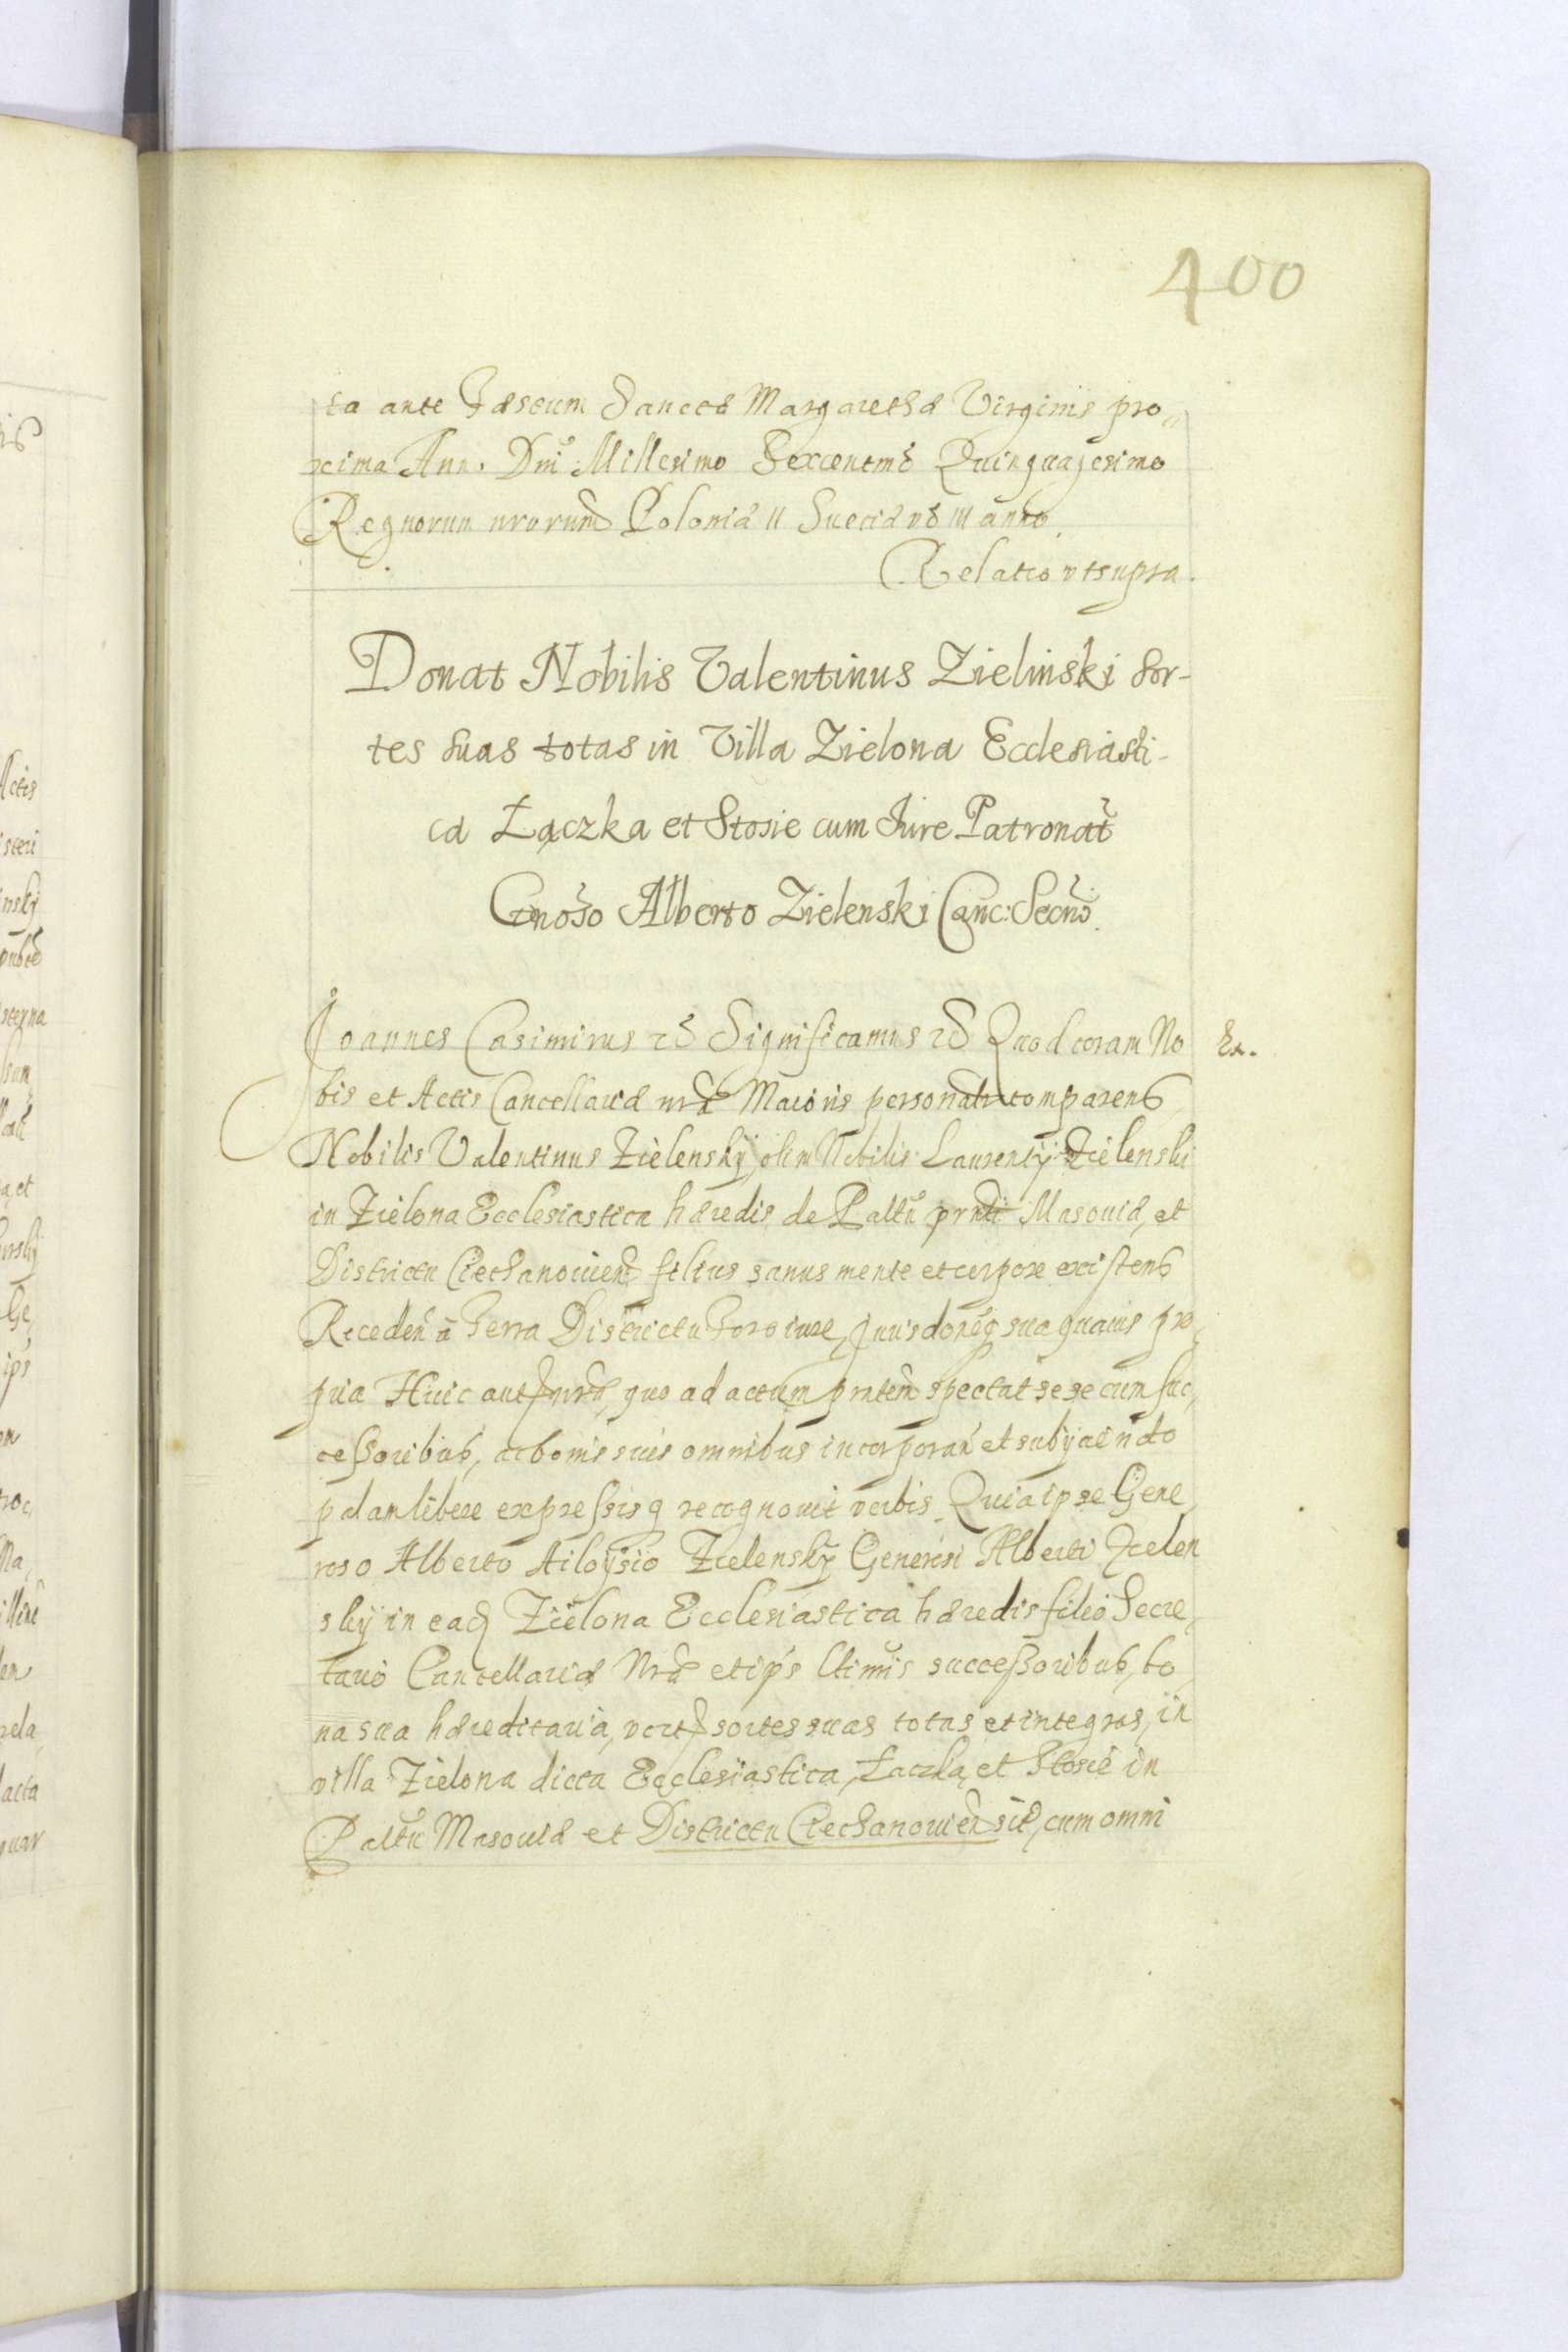 400
ta ante Fæstum Sanctæ Margarethæ Virginis pro„
xima Ann. Dni Millesimo Sexcentmo Quinquagesimo
Regnorum nrorum Poloniæ II Sueciæ vo III anno.
Relatio vt supra.
Donat Nobilis Valentinus Zielinski Sor-
tes Suas totas in Villa Zielona Ecclesiasti-
ca Łączka et Stosie cum Iure Patronat
Gnoso Alberto Zielenski Canc: Secrio.
Ioannes Casimirus etc Significamus etc Quod coram No
Ex.
bis et Actis Cancellariæ nræ Maioris personalr comparens
Nobilis Valentinus Zielenskÿ olim Nobilis Laurentÿ Zielenski
in Zielona Ecclesiastica hæredis de Paltu prnti Masouiæ, et
Districtu Ciechanouien filius sanus mente et corpore existens
Receden à Terra Districtu Foro iure, sua quauis pro„
pria Huic aut quo ad actum prntem spectat sese cum suc„
cessoribus, ac bonis suis omnibus incorporan et subÿciendo
palam libere expressisq recognouit verbis. Quia ipse Gene„
roso Alberto Ailoÿsio Zielenskÿ Generosi Alberti Zielen
skÿ in eadem Zielona Ecclesiastica hæredis filio Secre„
tario Cancellariæ Nræ et ips ltimis successoribus, bo„
na sua hæreditaria, sortes suas totas et integras, in
villa Zielona dicta Ecclesiastica, Łaczka, et Stosie in
Paltu Masouiæ et Districtu Ciechanouien sit, cum omni